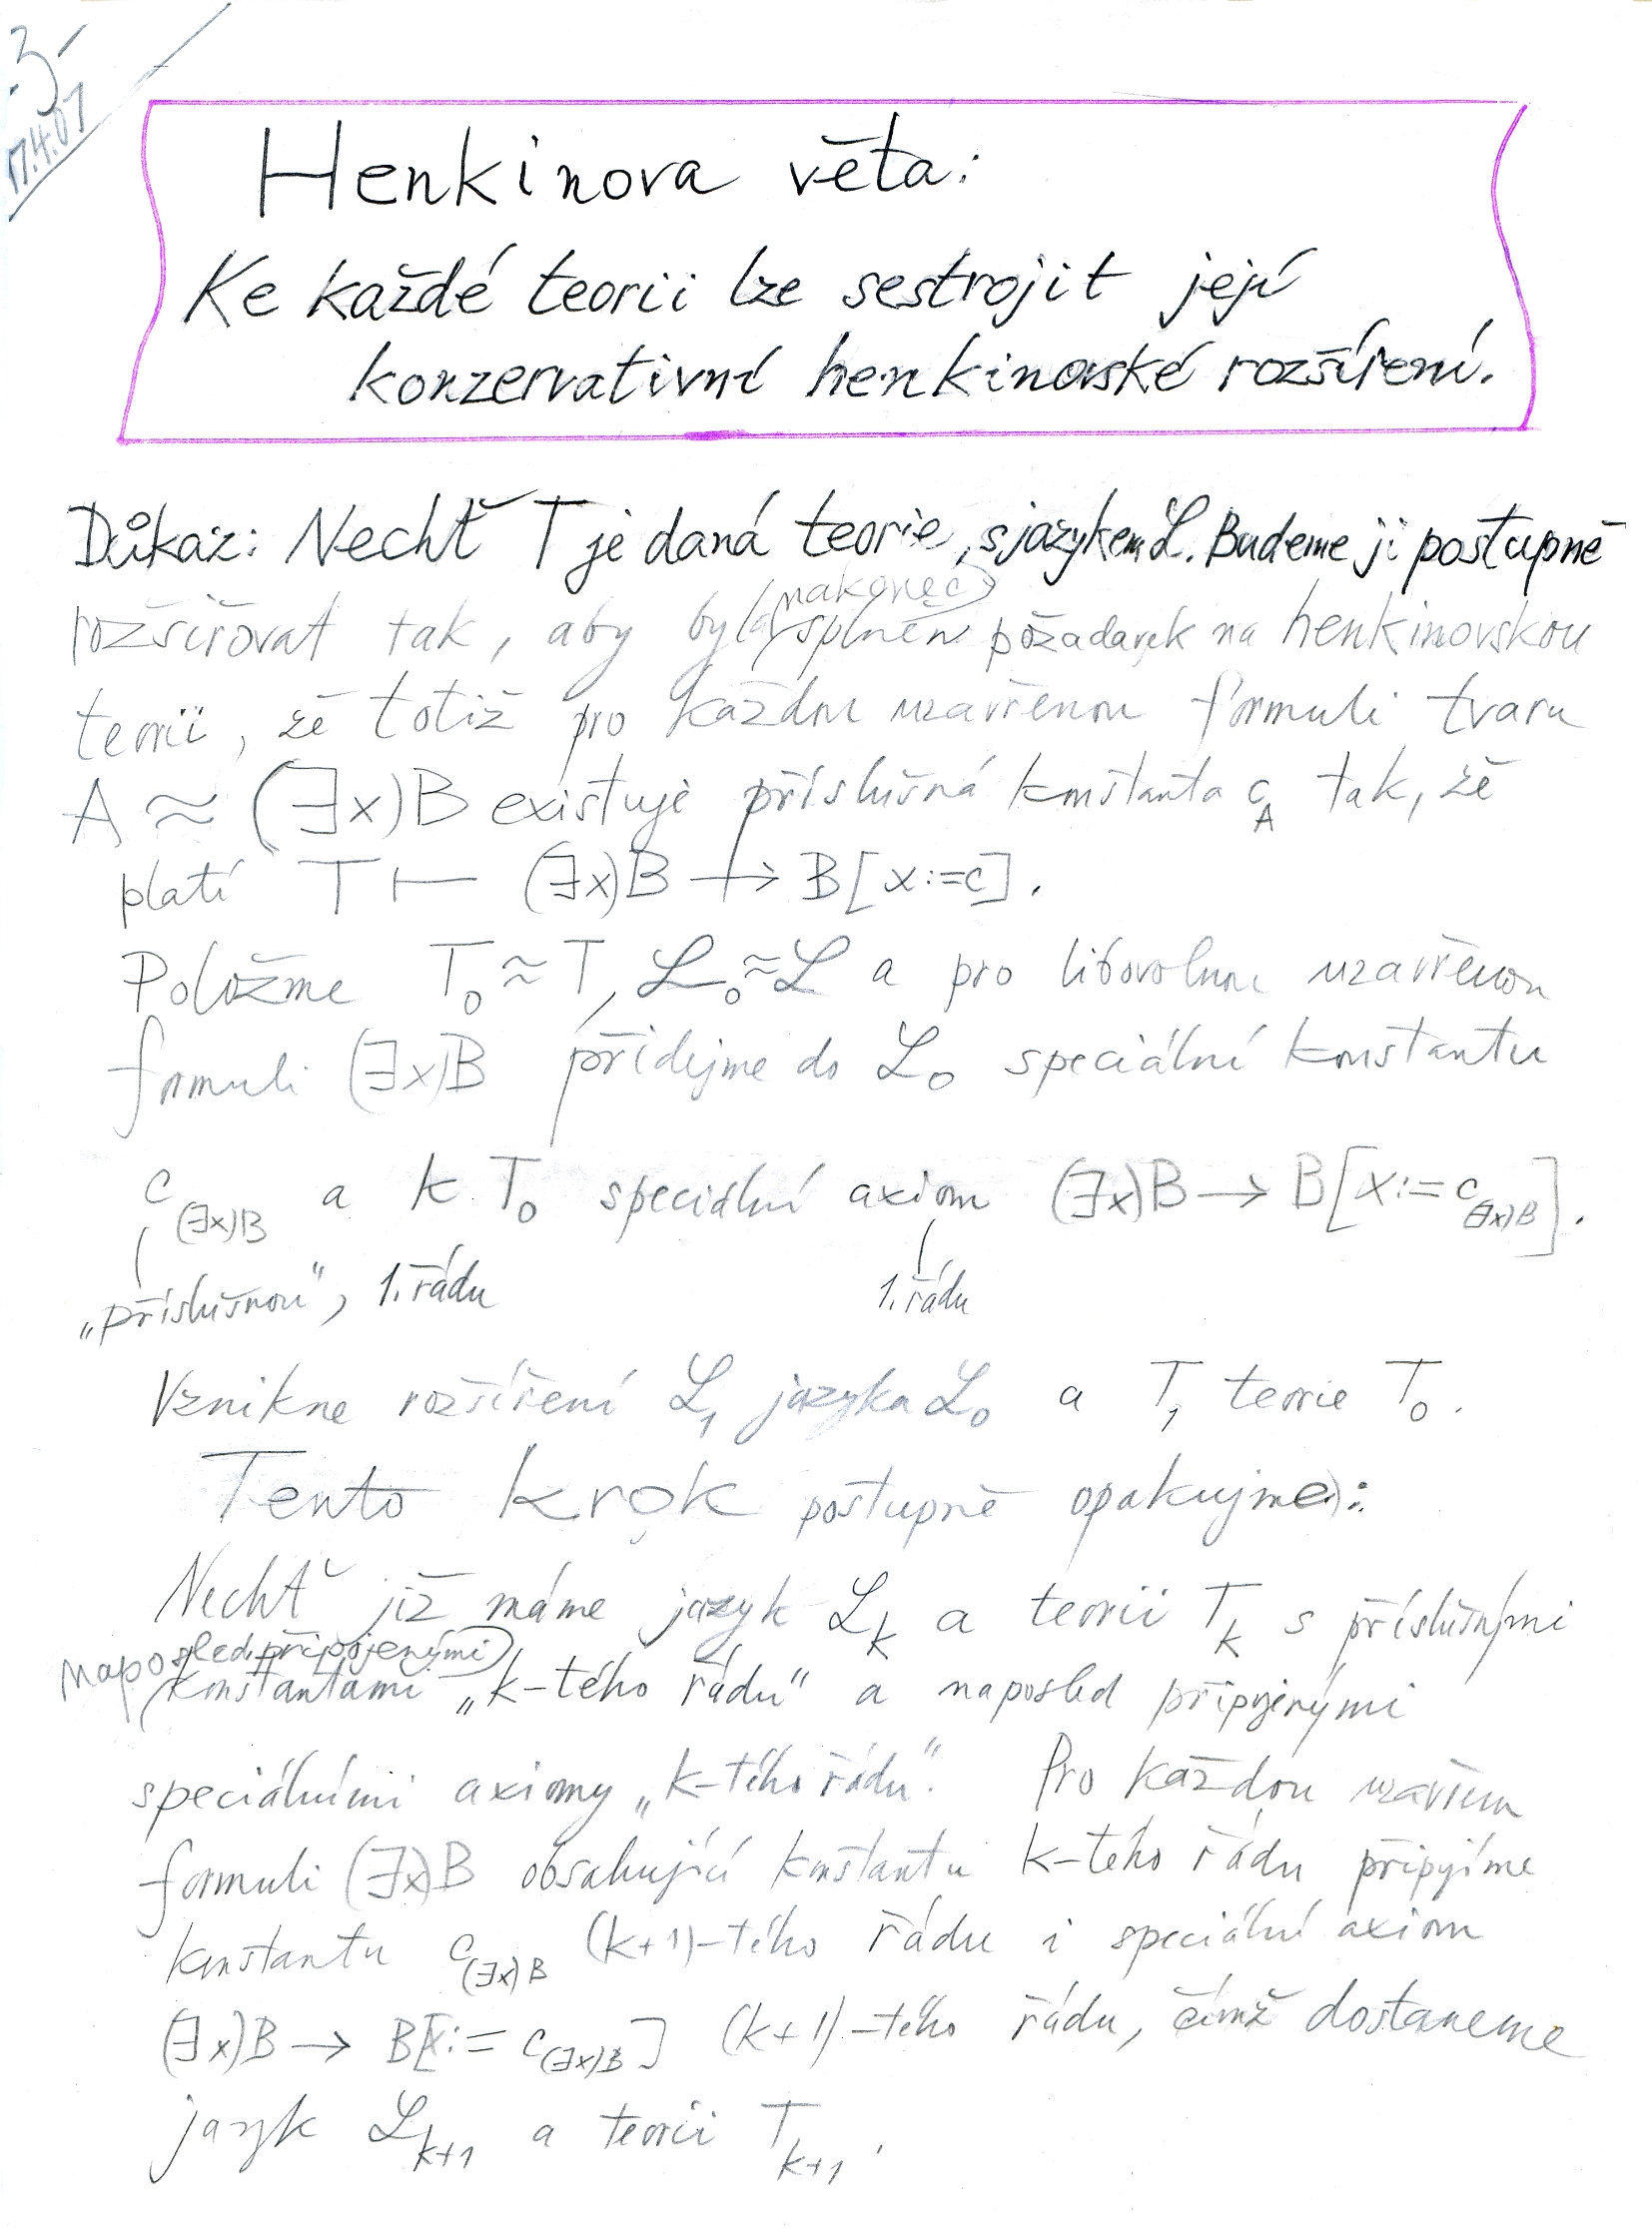 -3-
17.4.07
Henkinova věta:
Ke každé teorii lze sestrojit její
konzervativní henkinovské rozšíření.
Důkaz: Nechť T je daná teorie, s jazykem ℒ. Budeme ji postupně
nakonec
rozšiřovat tak, aby byl splněn požadavek na henkinovskou
teorii, že totiž pro každou uzavřenou formuli tvaru
A ≈ (∃x)B existuje příslušná konstanta c_A tak, že
platí T ⊢ (∃x)B → B[x:=c].
Položme T₀ ≈ T, ℒ₀ ≈ ℒ a pro libovolnou uzavřenou
formuli (∃x)B přidejme do ℒ₀ speciální konstantu
c_(∃x)B a k T₀ speciální axiom (∃x)B → B[x:=c_(∃x)B].
„příslušnou", 1. řádu 1. řádu
Vznikne rozšíření ℒ₁ jazyka ℒ₀ a T₁ teorie T₀.
Tento krok postupně opakujme:
Nechť již máme jazyk ℒ_k a teorii T_k s příslušnými
naposled připojenými
konstantami „k-tého řádu" a naposled připojenými
speciálními axiomy „k-tého řádu". Pro každou uzavřenou
formuli (∃x)B obsahující konstantu k-tého řádu připojíme
konstantu c_(∃x)B (k+1)-tého řádu i speciální axiom
(∃x)B → B[x:=c_(∃x)B] (k+1)-tého řádu, čímž dostaneme
jazyk ℒ_k+1 a teorii T_k+1.